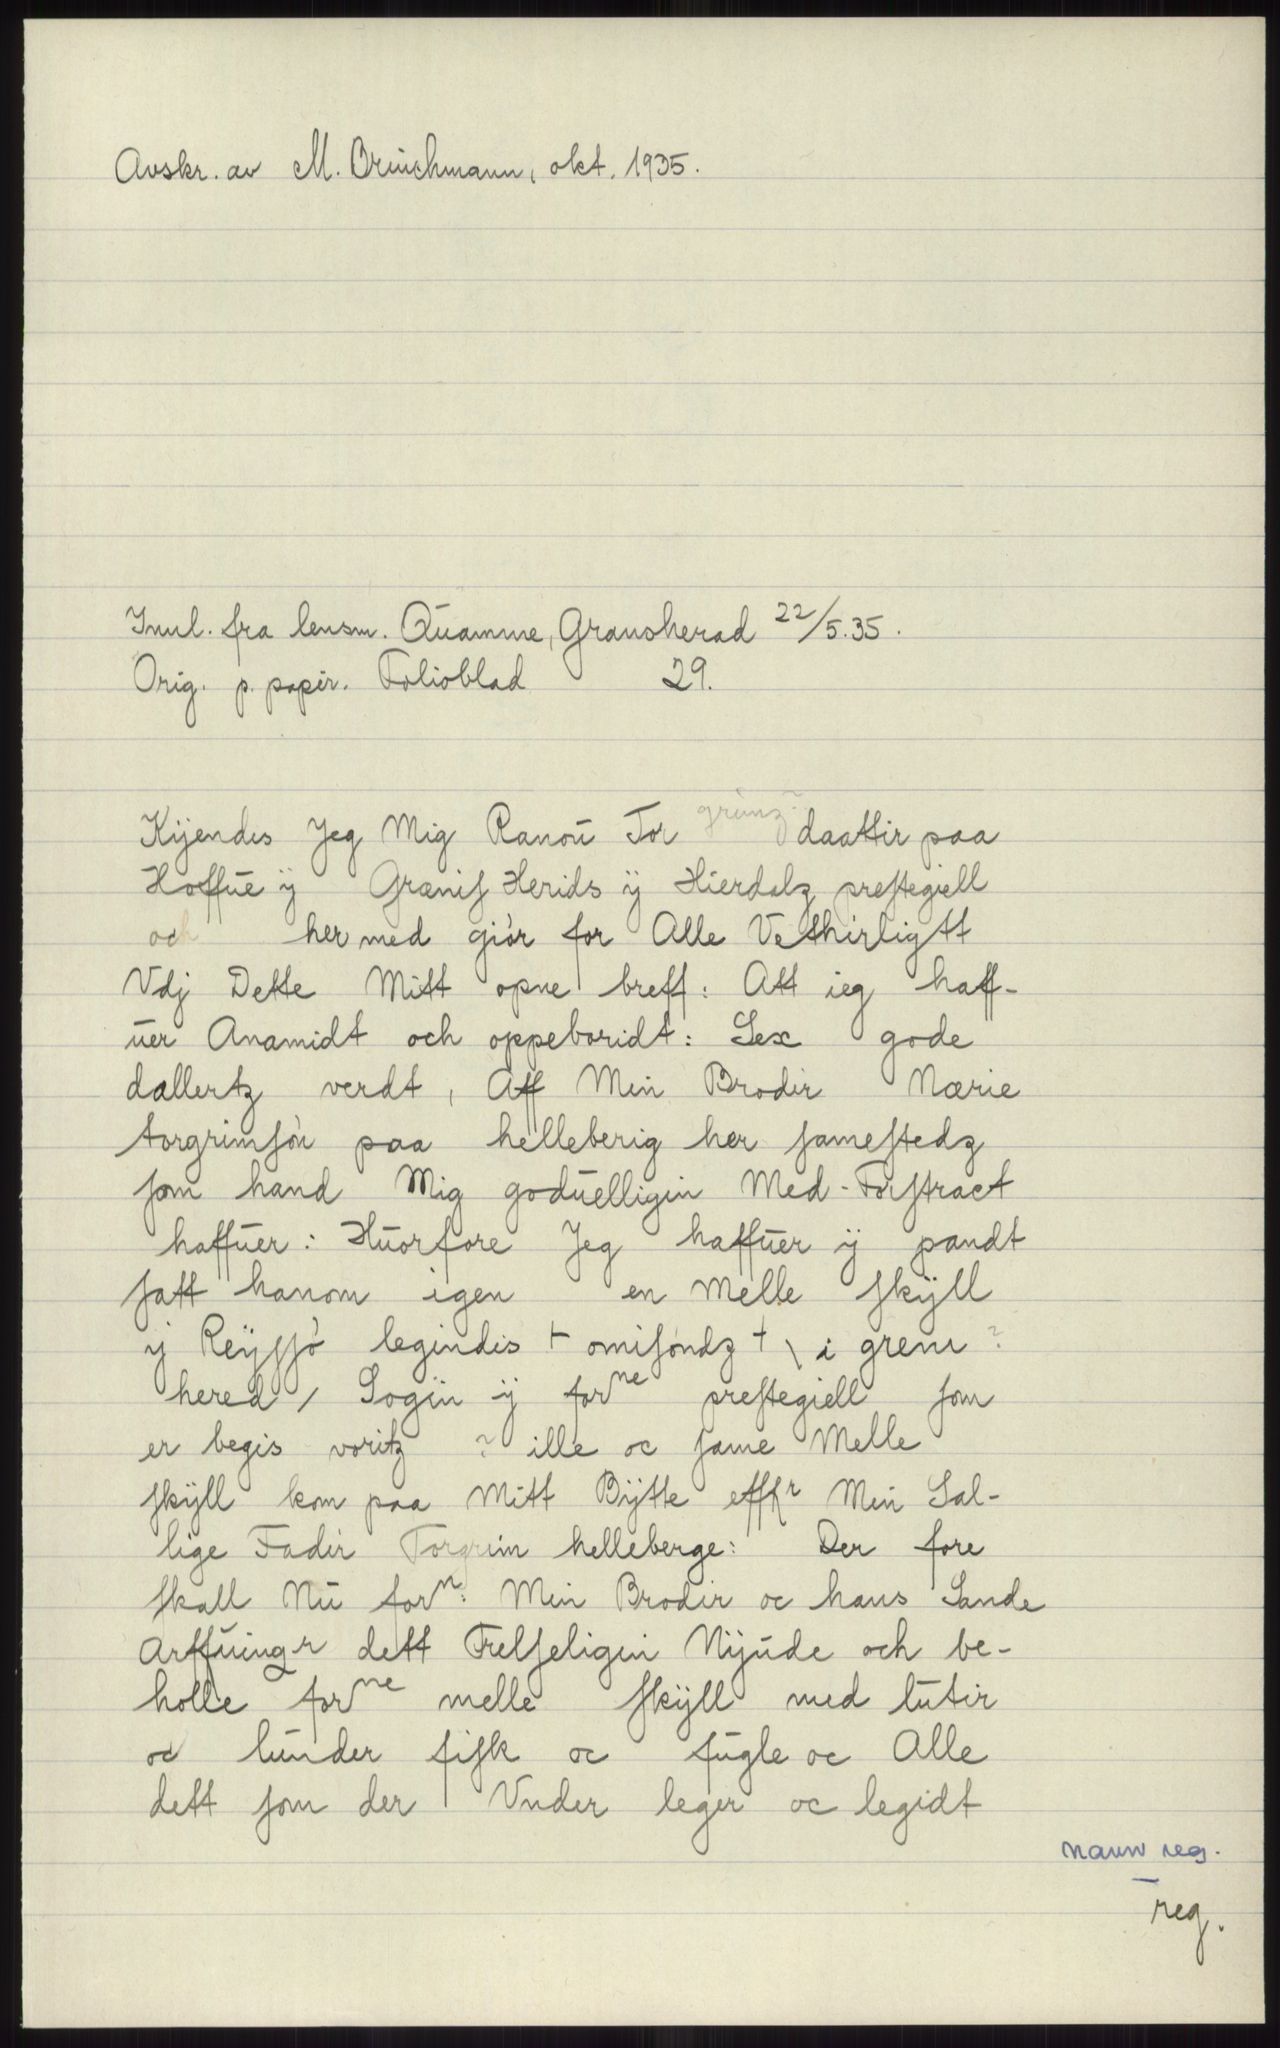 Avskr. av M. Brinchmann, okt. 1935.
Innl. fra lensm. Quamme, Gransherad 22/5.35.
Orig. p. papir. Folioblad 29.
Kÿendes Jeg Mig Ranou Tor grimz? daattir paa
Hoffue ÿ Grænis Herids ÿ Hierdalz prestegiell
och her med giør for Alle Vethirligtt
Vdj Dette Mitt opne breff: Att ieg haff-
uer Anamidt och oppeboridt: Sex gode
dallertz verdt, Aff Min Brodir Nærie
torgrimsøn paa helleberig her samestedz
som hand Mig goduelligin Med-Forstract
haffuer: Huorfore Jeg haffuer ÿ pandt
satt hanom igen en Melle skÿll
ÿ Reÿssø legindis + omisondz + \ i grene ?
hered / Sogin ÿ forne prestegiell som
er begis voritz ? ille oc same Melle
skÿll kom paa Mitt Bÿtte efftr Min Sal-
lige Fadir Torgrim helleberge: Der fore
skall Nu forn: Min Brodir oc hans Sande
Arffuingr dett Frelseligin Nÿude och be-
holle forne melle skÿll med lutir
oc lunder fisk oc fugle oc Alle
dett som der Vnder leger oc legidt
navn reg.
reg.